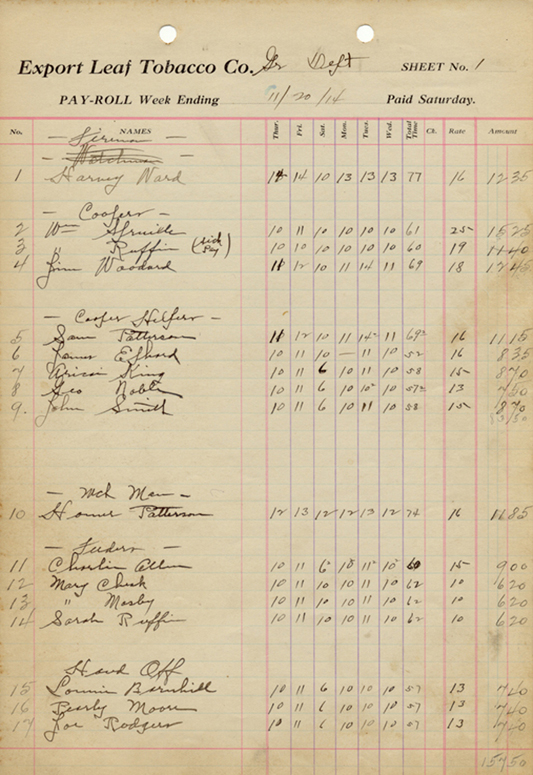 Export Leaf Tobacco Co. Gr Dept SHEET No. 1
PAY-ROLL Week Ending 11/20/14 Paid Saturday.
No. NAMES Thur. Fri. Sat. Mon. Tues. Wed. Total Time Ck. Rate Amount
- Fireman -
- Watchman -
1 Harvey Ward 14 14 10 13 13 13 77 16 12 35
- Coopers -
2 Wm Spruille 10 11 10 10 10 10 61 25 15 25
3 " Ruffin (sick pay) 10 10 10 10 10 10 60 19 11 40
4 Jim Woodard 11 12 10 11 14 11 69 18 12 45
- Cooper Helpers -
5 Sam Patterson 11 12 10 11 14 11 69 16 11 15
6 10 11 10 — 11 10 52 16 8 35
7 King 10 11 6 10 11 10 58 15 8 70
8 Geo Noble 10 11 6 10 10 10 57 13 7 50
9. John Smith 10 11 6 10 11 10 58 15 8 70
- Wch Men -
10 Homer Patterson 12 13 12 12 13 12 74 16 11 85
- Feeders -
11 Charlie Allen 10 11 6 10 11 10 60 15 9 00
12 Mary Cheek 10 11 10 10 11 10 62 10 6 20
13 " Mosby 10 11 10 10 11 10 62 10 6 20
14 Sarah Ruffin 10 11 10 10 11 10 62 10 6 20
Hand Off
15 Lonnie Barnhill 10 11 6 10 10 10 57 13 7 40
16 Pearly Moore 10 11 6 10 10 10 57 13 7 40
17 Joe Rodgers 10 11 6 10 10 10 57 13 7 40
157 50